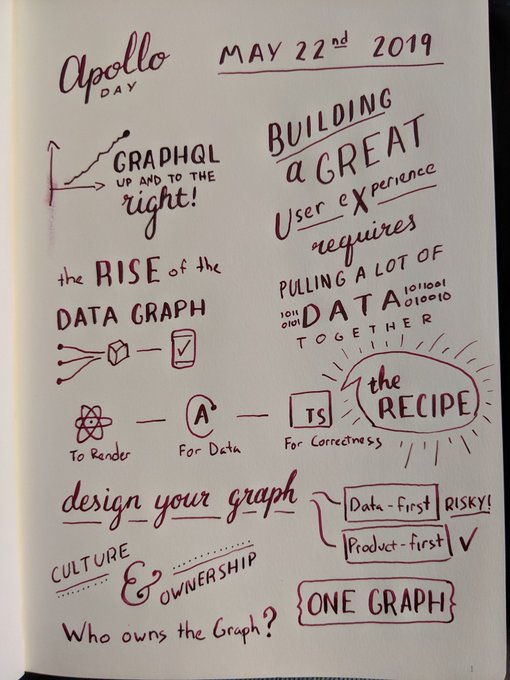 Apollo
DAY
MAY 22nd 2019
GRAPHQL
UP AND TO THE
right!
BUILDING
a GREAT
User eXperience
requires
PULLING A LOT OF
1011 DATA 1011001
0101 010010
TOGETHER
the RISE of the
DATA GRAPH
the
RECIPE
A
TS
To Render
For Data
For Correctness
design your graph
Data-first RISKY!
Product-first
CULTURE
&
OWNERSHIP
{ONE GRAPH}
Who owns the Graph?
1